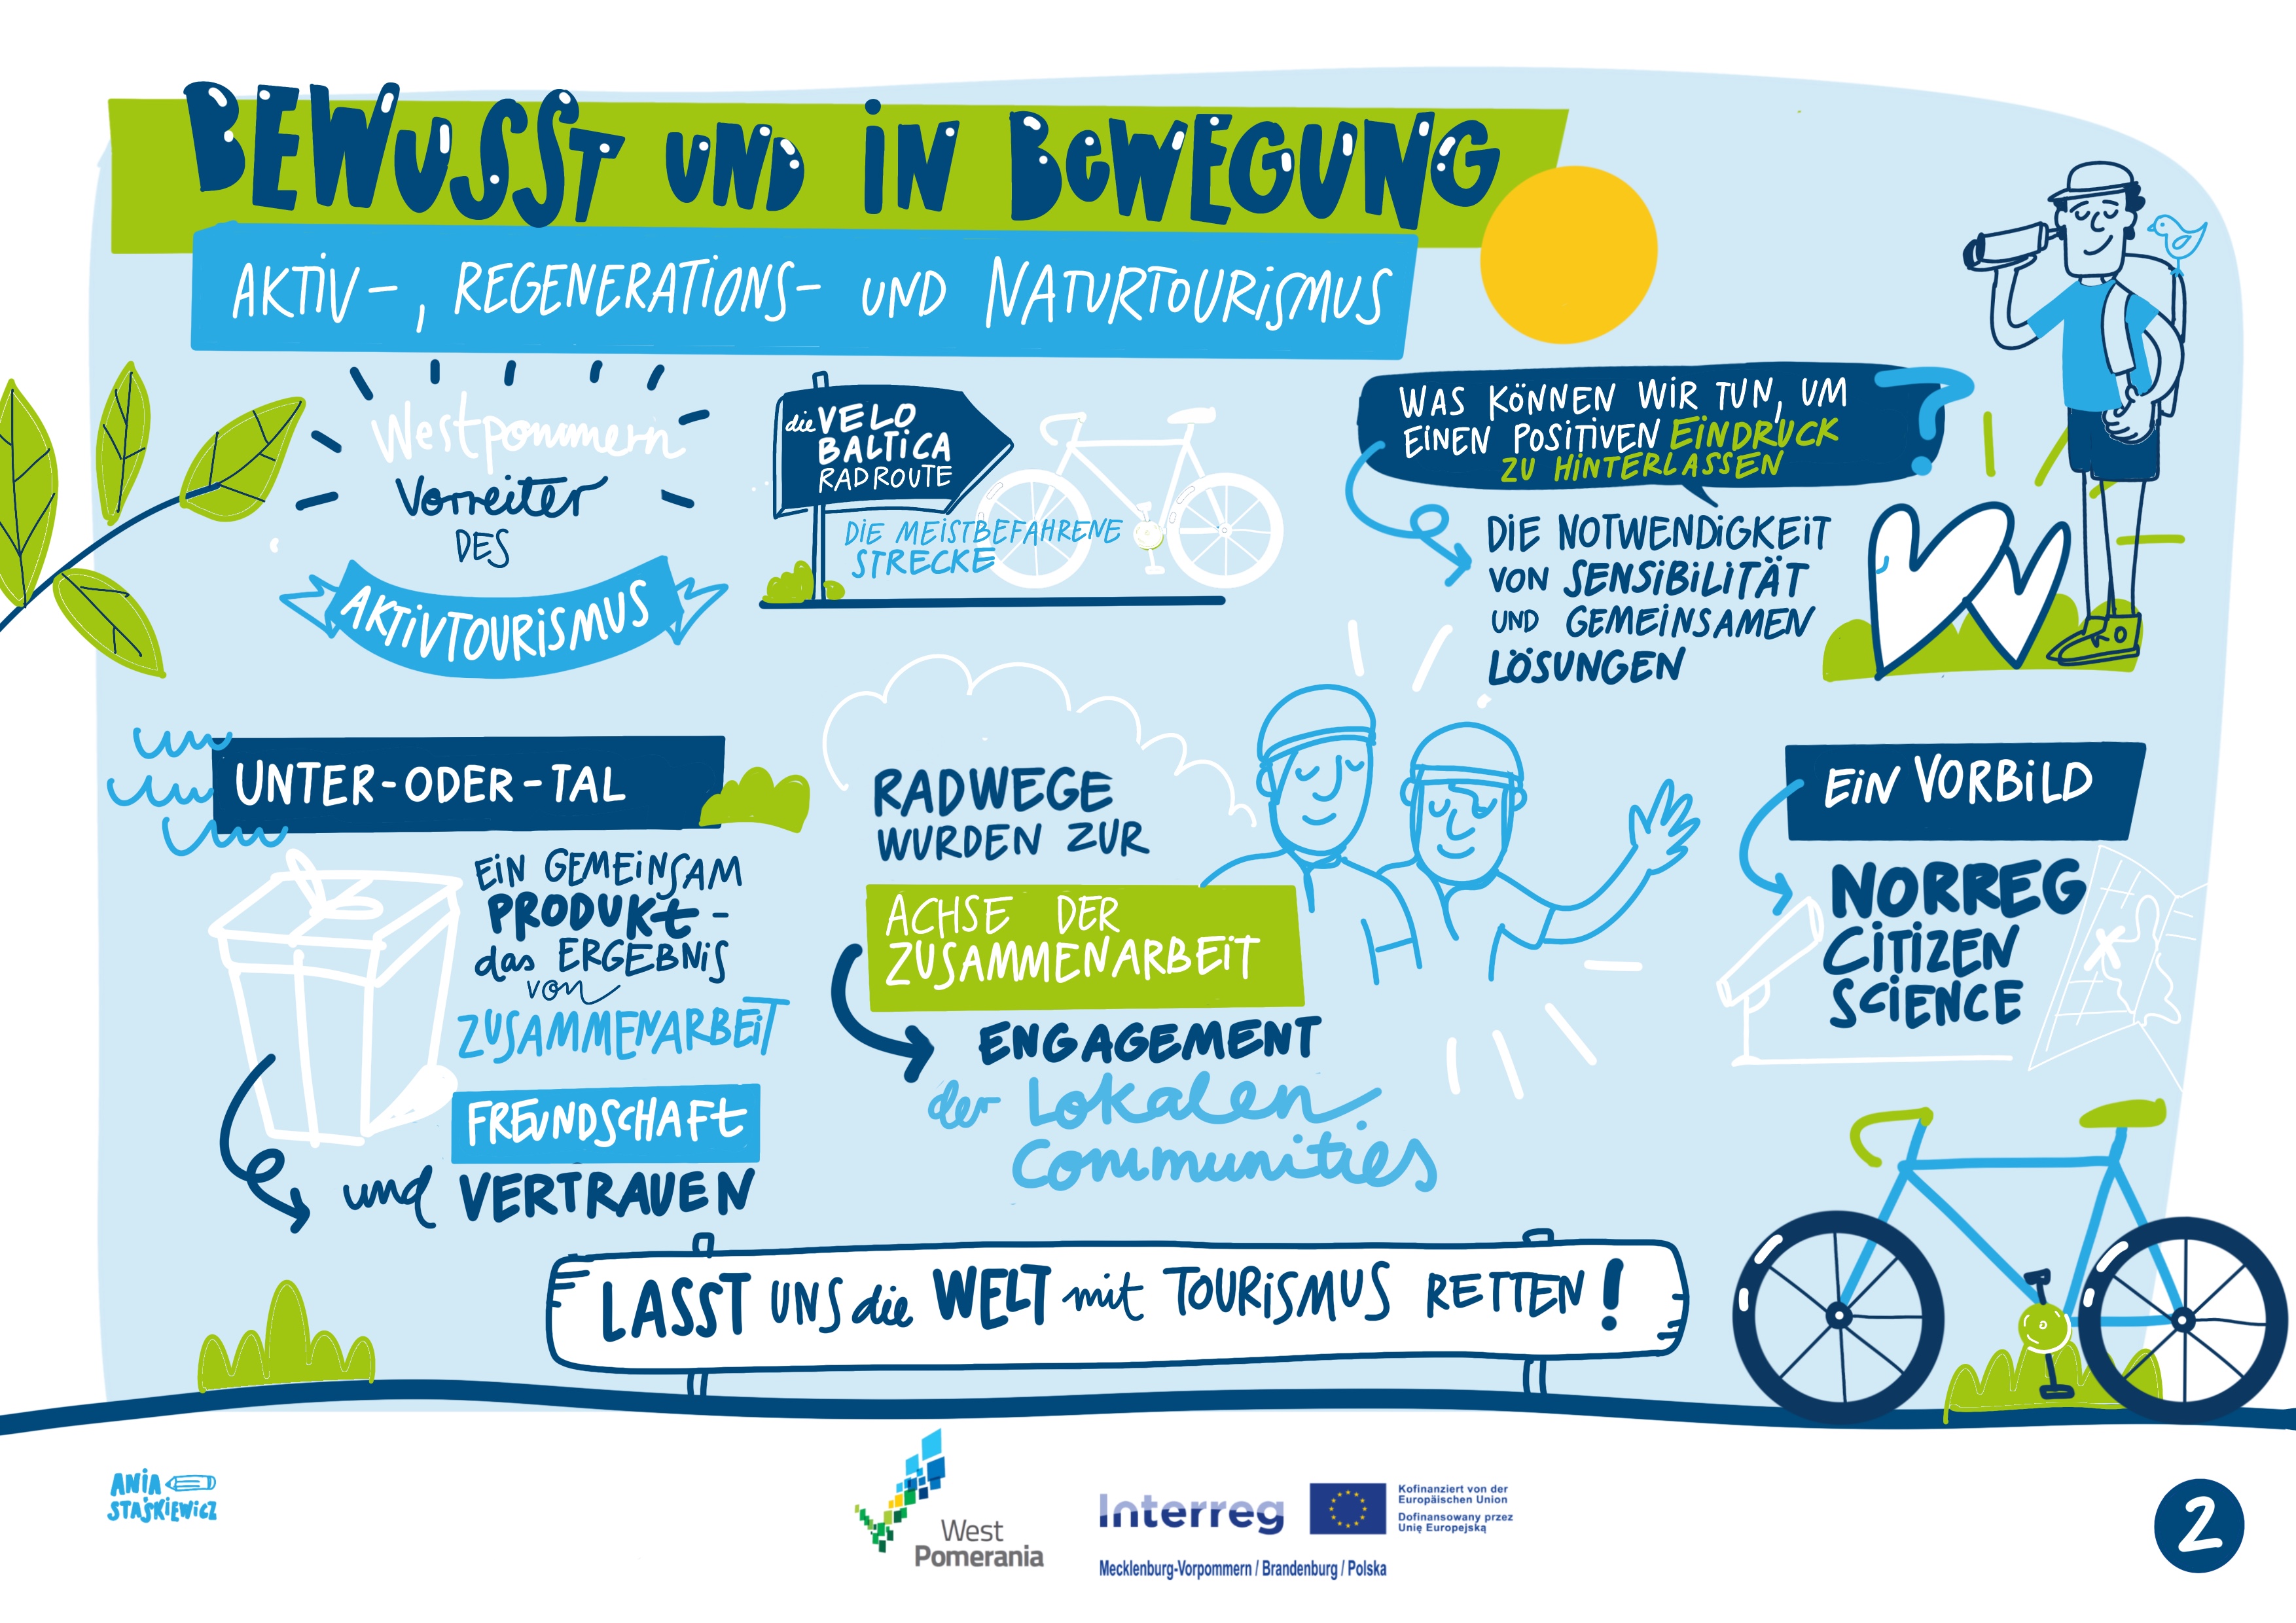 BEWUSST UND IN BEWEGUNG
AKTIV-, REGENERATIONS- UND NATURTOURISMUS
Westpommern
Vorreiter
DES
AKTIVTOURISMUS
die VELO
BALTICA
RADROUTE
DIE MEISTBEFAHRENE
STRECKE
WAS KÖNNEN WIR TUN, UM
EINEN POSITIVEN EINDRUCK
ZU HINTERLASSEN
?
DIE NOTWENDIGKEIT
VON SENSIBILITÄT
UND GEMEINSAMEN
LÖSUNGEN
UNTER-ODER-TAL
EIN GEMEINSAM
PRODUKT -
das ERGEBNIS
von
ZUSAMMENARBEIT
FREUNDSCHAFT
und VERTRAUEN
RADWEGE
WURDEN ZUR
ACHSE DER
ZUSAMMENARBEIT
ENGAGEMENT
der Lokalen
Communities
EIN VORBILD
NORREG
CITIZEN
SCIENCE
LASST UNS die WELT mit TOURISMUS RETTEN!
ANIA
STAŚKIEWICZ
West
Pomerania
Interreg
Kofinanziert von der
Europäischen Union
Dofinansowany przez
Unię Europejską
Mecklenburg-Vorpommern / Brandenburg / Polska
2